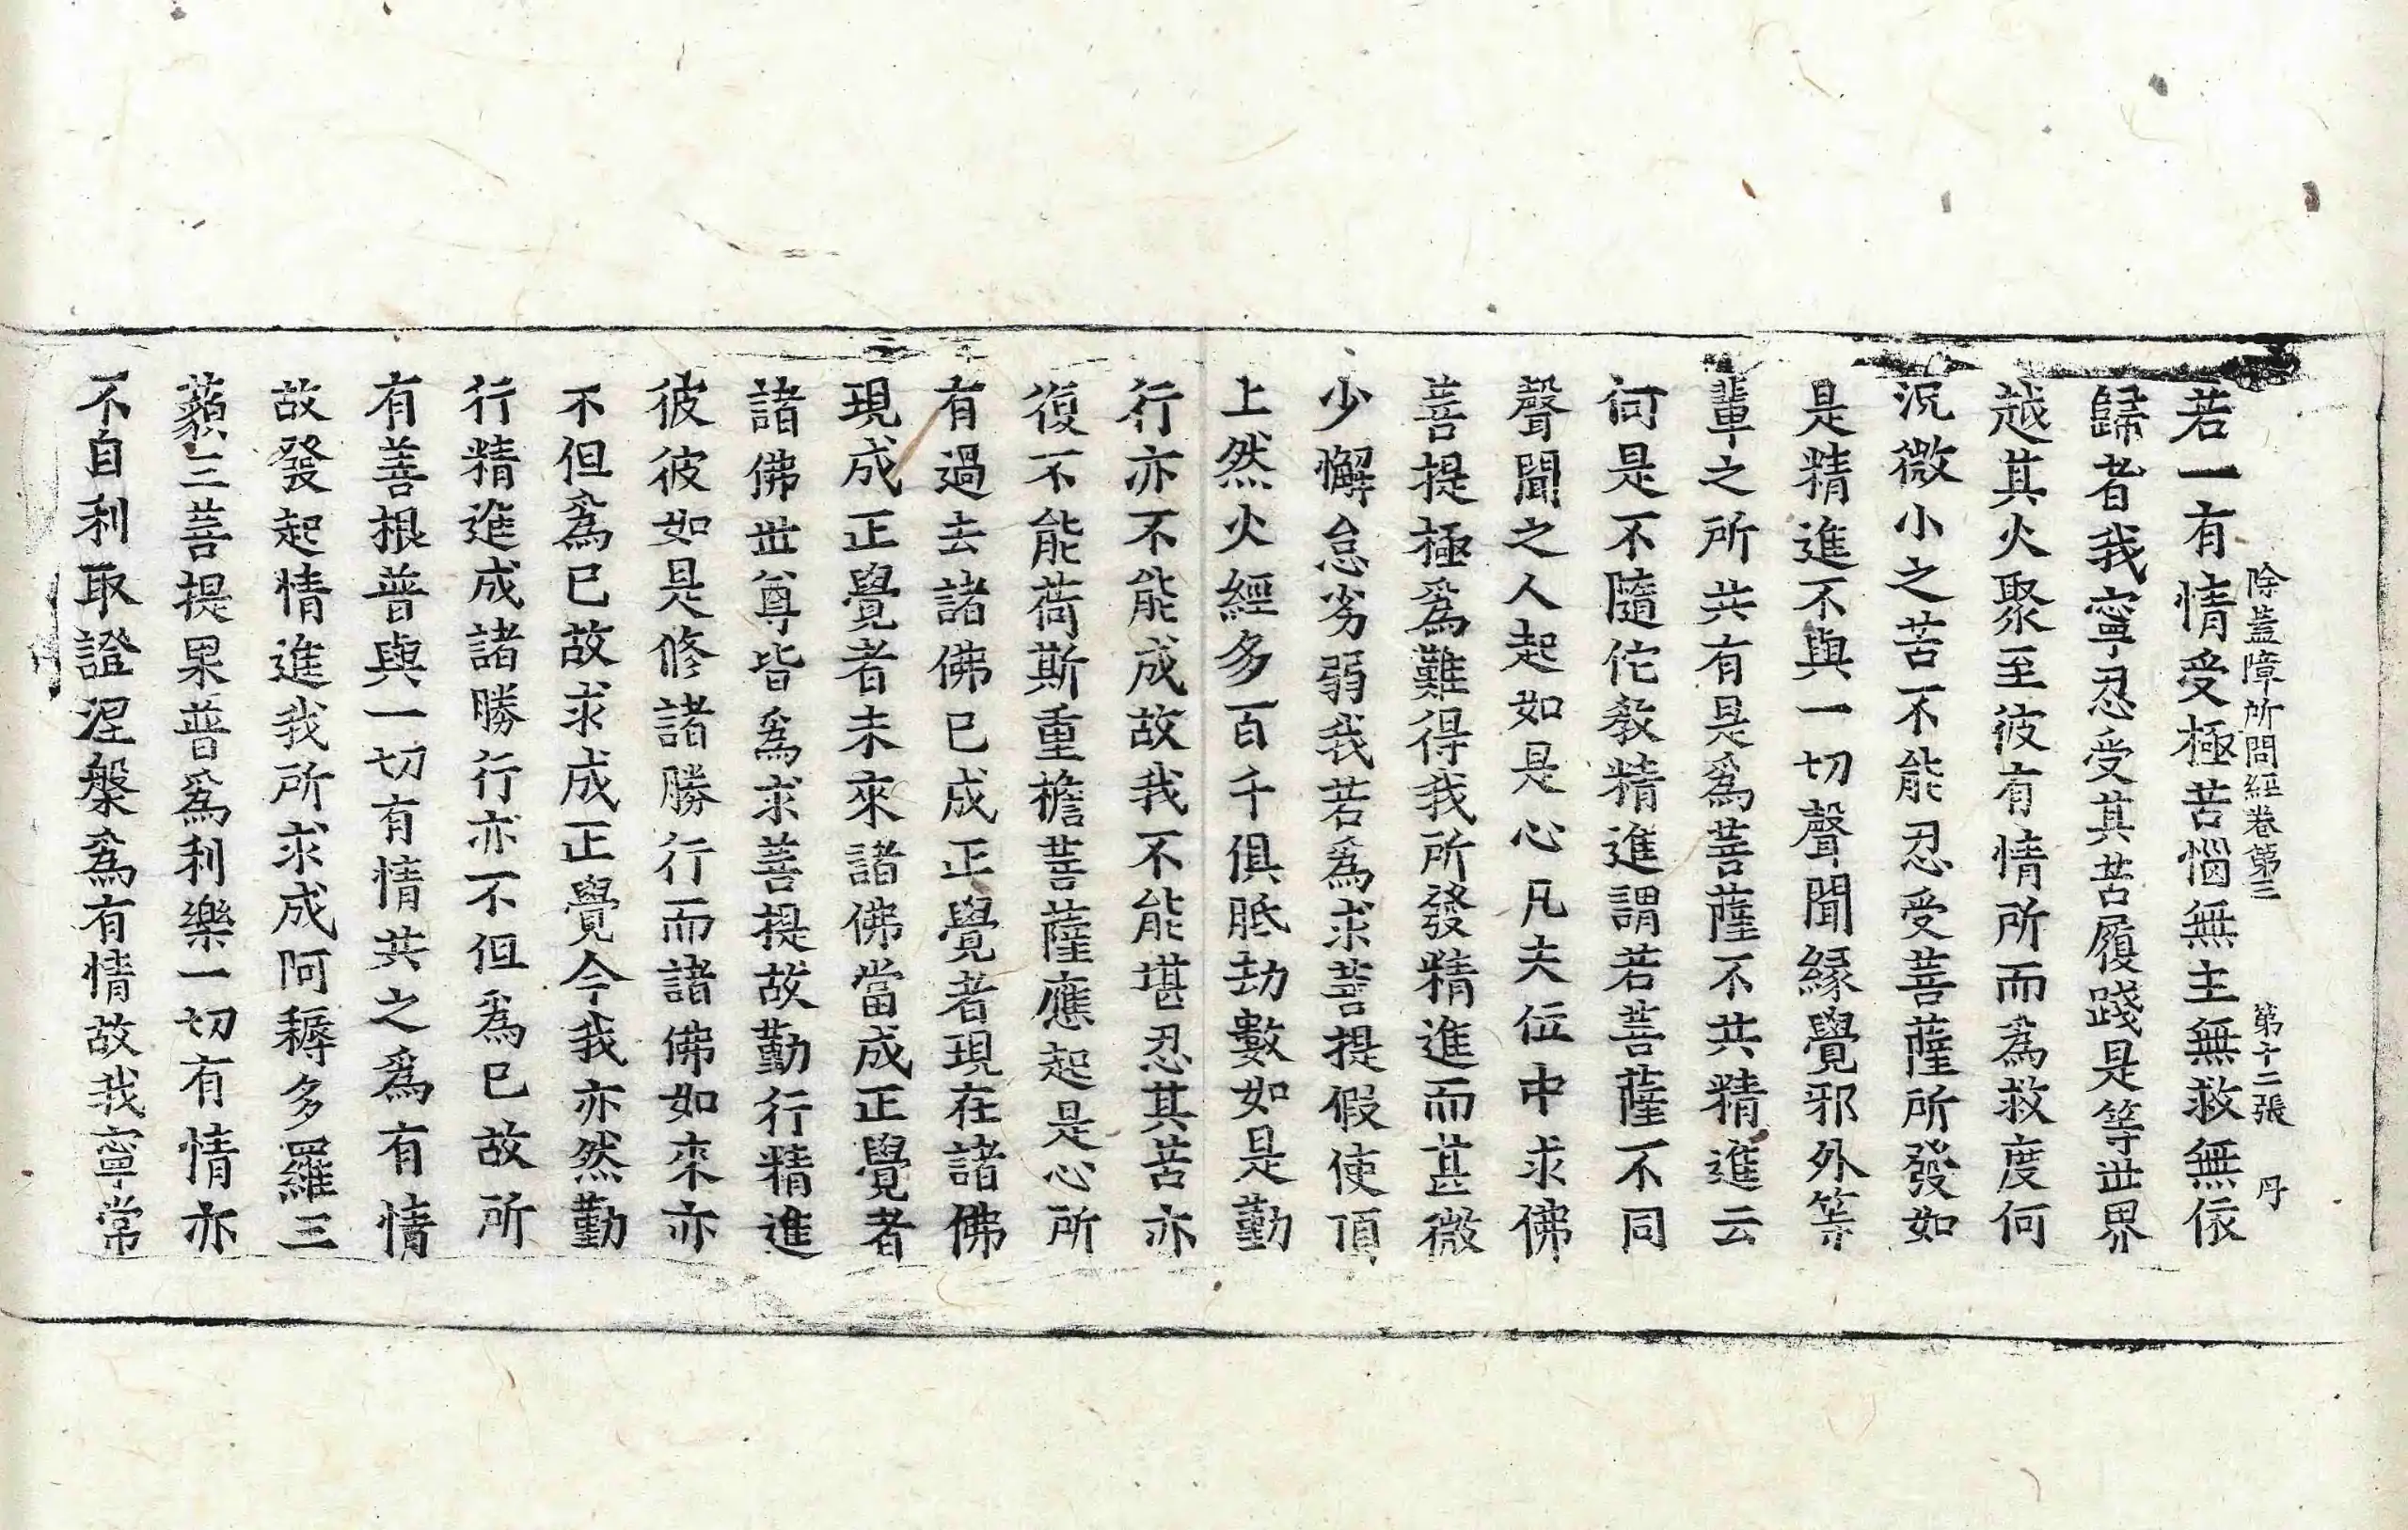 除蓋障所問經卷第三 第十二張 丹
若一有情受極苦惱無主無救無依
歸者我寧忍受其苦履踐是等世界
越其火聚至彼有情所而爲救度何
況微小之苦不能忍受菩薩所發如
是精進不與一切聲聞緣覺邪外等
輩之所共有是爲菩薩不共精進云
何是不隨佗教精進謂若菩薩不同
聲聞之人起如是心凡夫位中求佛
菩提極爲難得我所發精進而甚微
少懈怠劣弱我若爲求菩提假使頂
上然火經多百千俱胝劫數如是勤
行亦不能成故我不能堪忍其苦亦
復不能荷斯重檐菩薩應起是心所
有過去諸佛已成正覺者現在諸佛
現成正覺者未來諸佛當成正覺者
諸佛世尊皆爲求菩提故勤行精進
彼彼如是修諸勝行而諸佛如來亦
不但爲已故求成正覺今我亦然勤
行精進成諸勝行亦不但爲已故所
有善根普與一切有情共之爲有情
故發起情進我所求成阿耨多羅三
藐三菩提果普爲利樂一切有情亦
不自利取證涅槃爲有情故我寧常